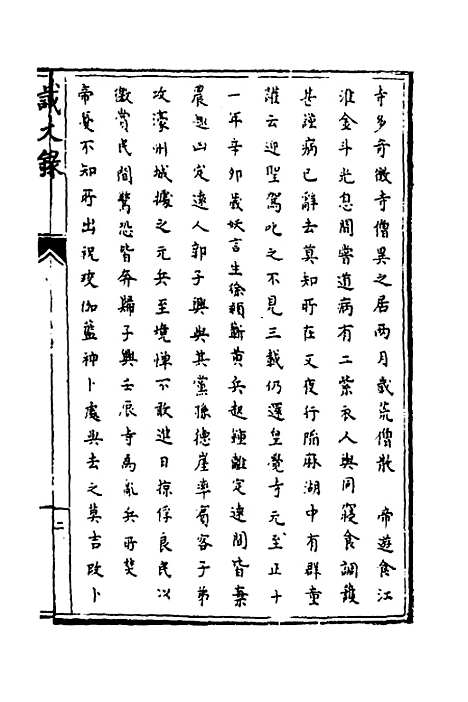 寺多奇徵寺僧異之居兩月歲荒僧散　帝遊食江
淮金斗光息間嘗道病有二紫衣人與同寢食調護
甚謹病已辭去莫知所在又夜行陷麻湖中有群童
譁云迎聖駕叱之不見三載仍還皇覺寺元至正十
一年辛卯歲妖言生徐潁蘄黄兵起鍾離定遠間皆棄
農趨山定遠人郭子興與其黨孫德崖率賓客子弟
攻濠州城據之元兵至境憚不敢進日掠俘良民以
徼賞民間驚恐皆奔歸子興壬辰寺爲亂兵所焚
帝憂不知所出祝珓伽藍神卜處與去之莫吉改卜
識大錄
二